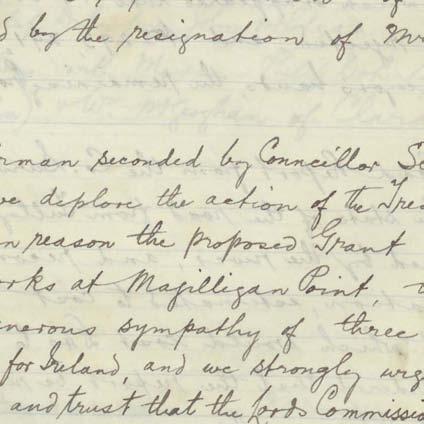 d by the resignation of Mr
rman seconded by Councillor Se
we deplore the action of the Trea
n reason the proposed Grant
orks at Magilligan Point, t
enerous sympathy of three
for Ireland, and we strongly urg
and trust that the Lords Commissio